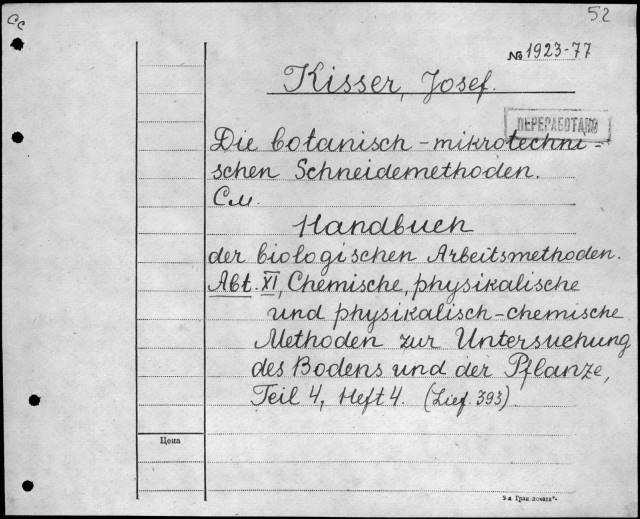 Сс
52
№ 1923-77
Kisser, Josef.
ПЕРЕРАБОТАНО
Die botanisch-mikrotechni-
schen Schneidemethoden.
См.
Handbuch
der biologischen Arbeitsmethoden.
Abt. XI, Chemische, physikalische
und physikalisch-chemische
Methoden zur Untersuchung
des Bodens und der Pflanze,
Teil 4, Heft 4. (Lief. 393)
Цена